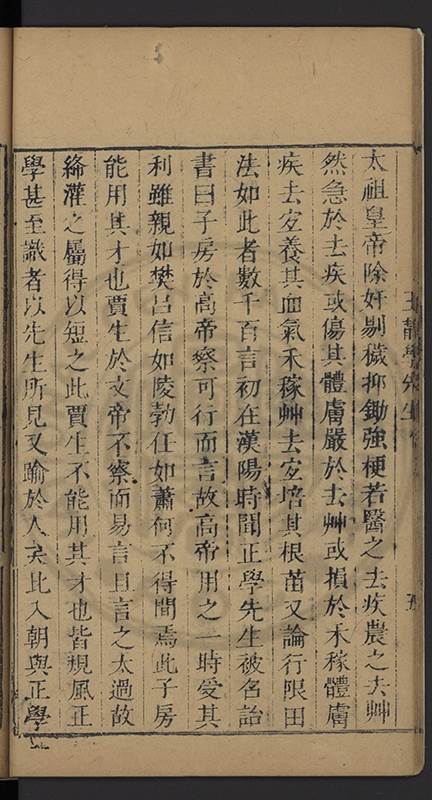 太祖皇帝除奸剔穢抑鋤強梗若醫之去疾農之去艸
然急於去疾或傷其體膚嚴於去艸或損於禾稼體膚
疾去宜養其血氣禾稼艸去宜培其根苗又論行限田
法如此者數千百言初在漢陽時聞正學先生被名詒
書曰子房於高帝察可行而言故高帝用之一時受其
利雖親如樊吕信如陵勃任如蕭何不得間焉此子房
能用其才也賈生於文帝不察而易言且言之太過故
絳灌之屬得以短之此賈生不能用其才也皆規風正
學甚至識者以先生所見又踰於人矣此入朝與正學
王靜學先生
五